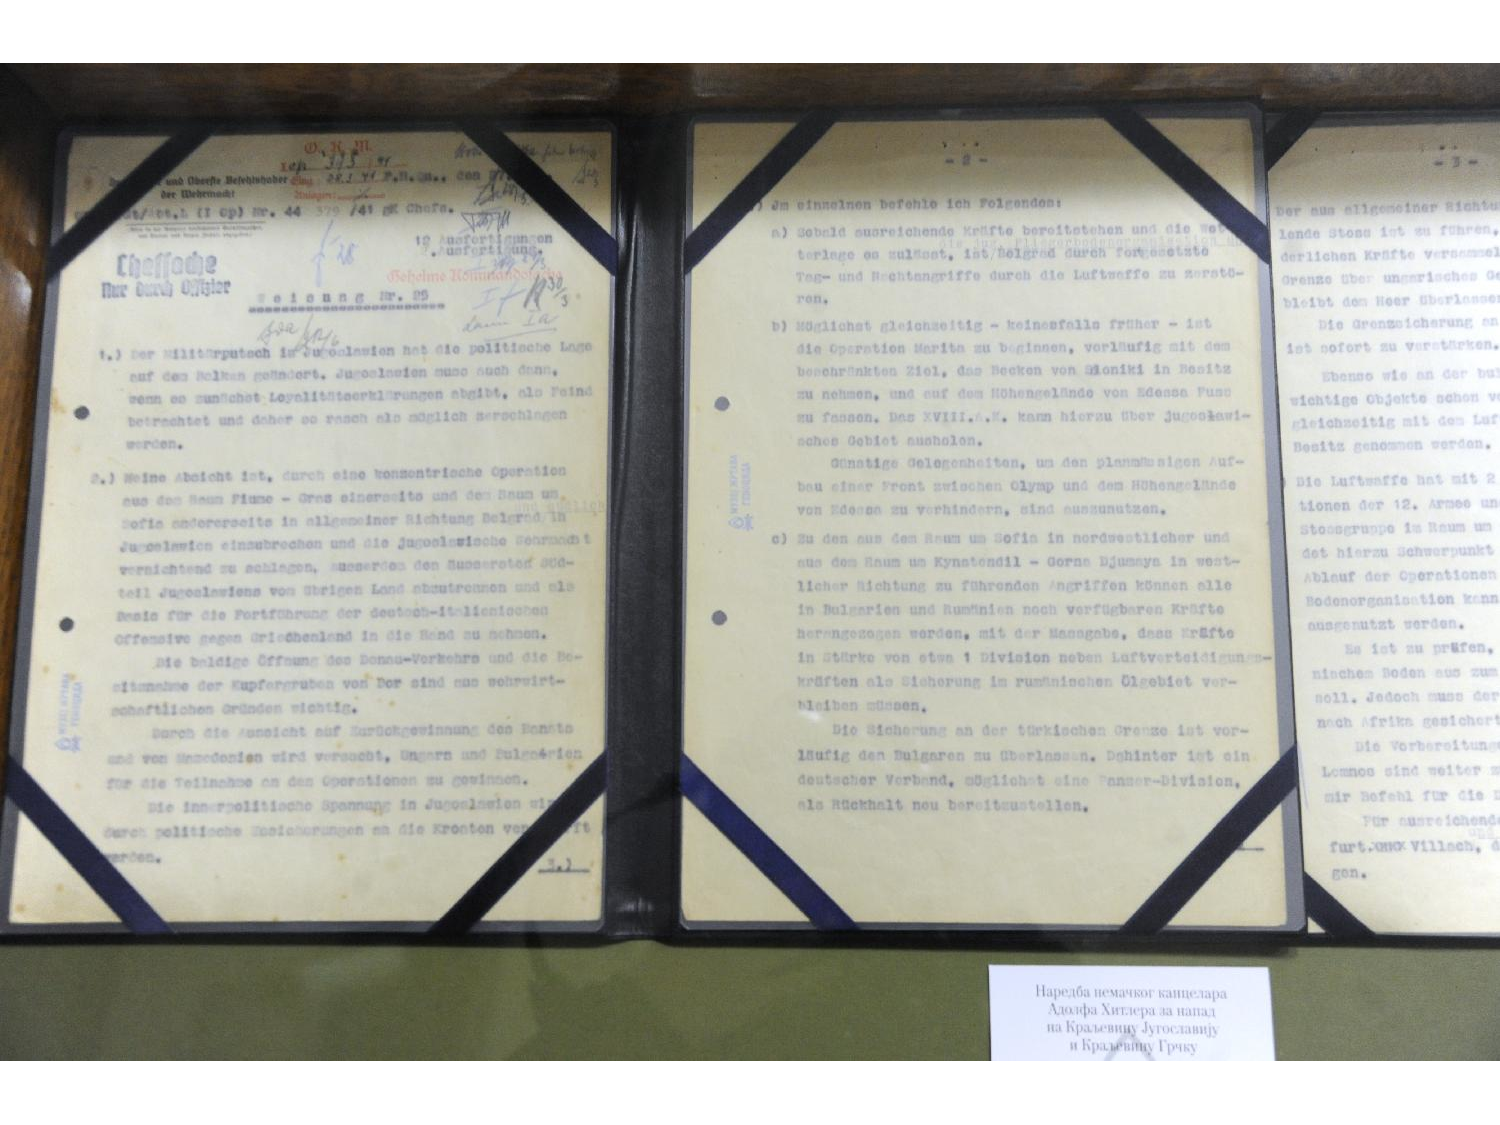 O. K. M.
1op 393 /41
und Oberste Befehlshaber Eing. 28.3.41 F.H.Qu., den
der Wehrmacht Anlagen:
St/Abt.L (I Op) Nr. 44 379 /41 gK Chefs.
28
12 Ausfertigungen
2. Ausfertigung.
Chefsache
Nur durch Offizier
Geheime Kommandosache
Weisung Nr. 25
1.) Der Militärputsch in Jugoslawien hat die politische Lage
auf dem Balkan geändert. Jugoslawien muss auch dann,
wenn es zunächst Loyalitätserklärungen abgibt, als Feind
betrachtet und daher so rasch als möglich zerschlagen
werden.
2.) Meine Absicht ist, durch eine konzentrische Operation
aus dem Raum Fiume - Graz einerseits und dem Raum um
und südlich
Sofia andererseits in allgemeiner Richtung Belgrad in
Jugoslawien einzubrechen und die jugoslawische Wehrmacht
vernichtend zu schlagen, ausserdem den äussersten Süd-
teil Jugoslawiens vom übrigen Land abzutrennen und als
Basis für die Fortführung der deutsch-italienischen
Offensive gegen Griechenland in die Hand zu nehmen.
Die baldige Öffnung des Donau-Verkehrs und die Be-
sitznahme der Kupfergruben von Bor sind aus wehrwirt-
schaftlichen Gründen wichtig.
Durch die Aussicht auf Zurückgewinnung des Banats
und von Mazedonien wird versucht, Ungarn und Bulgarien
für die Teilnahme an den Operationen zu gewinnen.
Die innerpolitische Spannung in Jugoslawien
durch politische Zusicherungen an die Kroaten
werden.
3.)
- 2 -
) Jm einzelnen befehle ich Folgendes:
a) Sobald ausreichende Kräfte bereitstehen und die Wet-
die jug. Fliegerbodenorganisation
terlage es zulässt, ist/Belgrad durch fortgesetzte
Tag- und Nachtangriffe durch die Luftwaffe zu zerstö-
ren.
b) Möglichst gleichzeitig - keinesfalls früher - ist
die Operation Marita zu beginnen, vorläufig mit dem
beschränkten Ziel, das Becken von Sloniki in Besitz
zu nehmen, und auf dem Höhengelände von Edessa Fuss
zu fassen. Das XVIII.A.K. kann hierzu über jugoslawi-
sches Gebiet ausholen.
Günstige Gelegenheiten, um den planmässigen Auf-
bau einer Front zwischen Olymp und dem Höhengelände
von Edessa zu verhindern, sind auszunutzen.
c) Zu den aus dem Raum um Sofia in nordwestlicher und
aus dem Raum um Kynstendil - Gorna Djumaya in west-
licher Richtung zu führenden Angriffen können alle
in Bulgarien und Rumänien noch verfügbaren Kräfte
herangezogen werden, mit der Massgabe, dass Kräfte
in Stärke von etwa 1 Division neben Luftverteidigungs-
kräften als Sicherung im rumänischen Ölgebiet ver-
bleiben müssen.
Die Sicherung an der türkischen Grenze ist vor-
läufig den Bulgaren zu überlassen. Dahinter ist ein
deutscher Verband, möglichst eine Panzer-Division,
als Rückhalt neu bereitzustellen.
- 3 -
Der aus allgemeiner Richtu
lende Stoss ist zu führen,
derlichen Kräfte versammel
Grenze über ungarisches Ge
bleibt dem Heer überlassen
Die Grenzsicherung an
ist sofort zu verstärken.
Ebenso wie an der bul
wichtige Objekte schon v
gleichzeitig mit dem Luf
Besitz genommen werden.
) Die Luftwaffe hat mit 2
tionen der 12. Armee un
Stossgruppe im Raum um
det hierzu Schwerpunkt
Ablauf der Operationen
Bodenorganisation kann
ausgenutzt werden.
Es ist zu prüfen,
nischem Boden aus zum
soll. Jedoch muss der
nach Afrika gesichert
Die Vorbereitunge
Lemnos sind weiter z
mir Befehl für die D
Für ausreichende
und
furt, Villach,
gen.
Наредба немачког канцелара
Адолфа Хитлера за напад
на Краљевину Југославију
и Краљевину Грчку